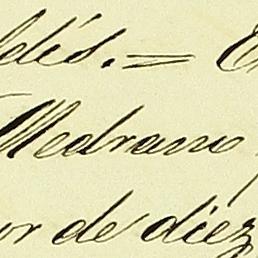 ldés. = E
Medrano
or de diez